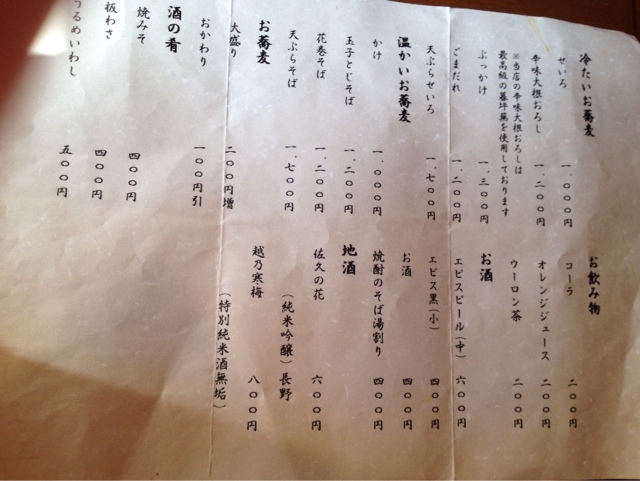 冷たいお蕎麦
せいろ 一、〇〇〇円
辛味大根おろし 一、二〇〇円
※当店の辛味大根おろしは
最高級の暮坪蕪を使用しております
ぶっかけ 一、三〇〇円
ごまだれ 一、二〇〇円
天ぷらせいろ 一、七〇〇円
温かいお蕎麦
かけ 一、〇〇〇円
玉子とじそば 一、二〇〇円
花巻そば 一、二〇〇円
天ぷらそば 一、七〇〇円
お蕎麦
大盛り 二〇〇円増
おかわり 一〇〇円引
酒の肴
焼みそ 四〇〇円
板わさ 四〇〇円
うるめいわし 五〇〇円
お飲み物
コーラ 二〇〇円
オレンジジュース 二〇〇円
ウーロン茶 二〇〇円
お酒
ヱビスビール(中) 六〇〇円
ヱビス黒(小) 四〇〇円
お酒 四〇〇円
焼酎のそば湯割り 四〇〇円
地酒
佐久の花 六〇〇円
(純米吟醸)長野
越乃寒梅 八〇〇円
(特別純米酒無垢)